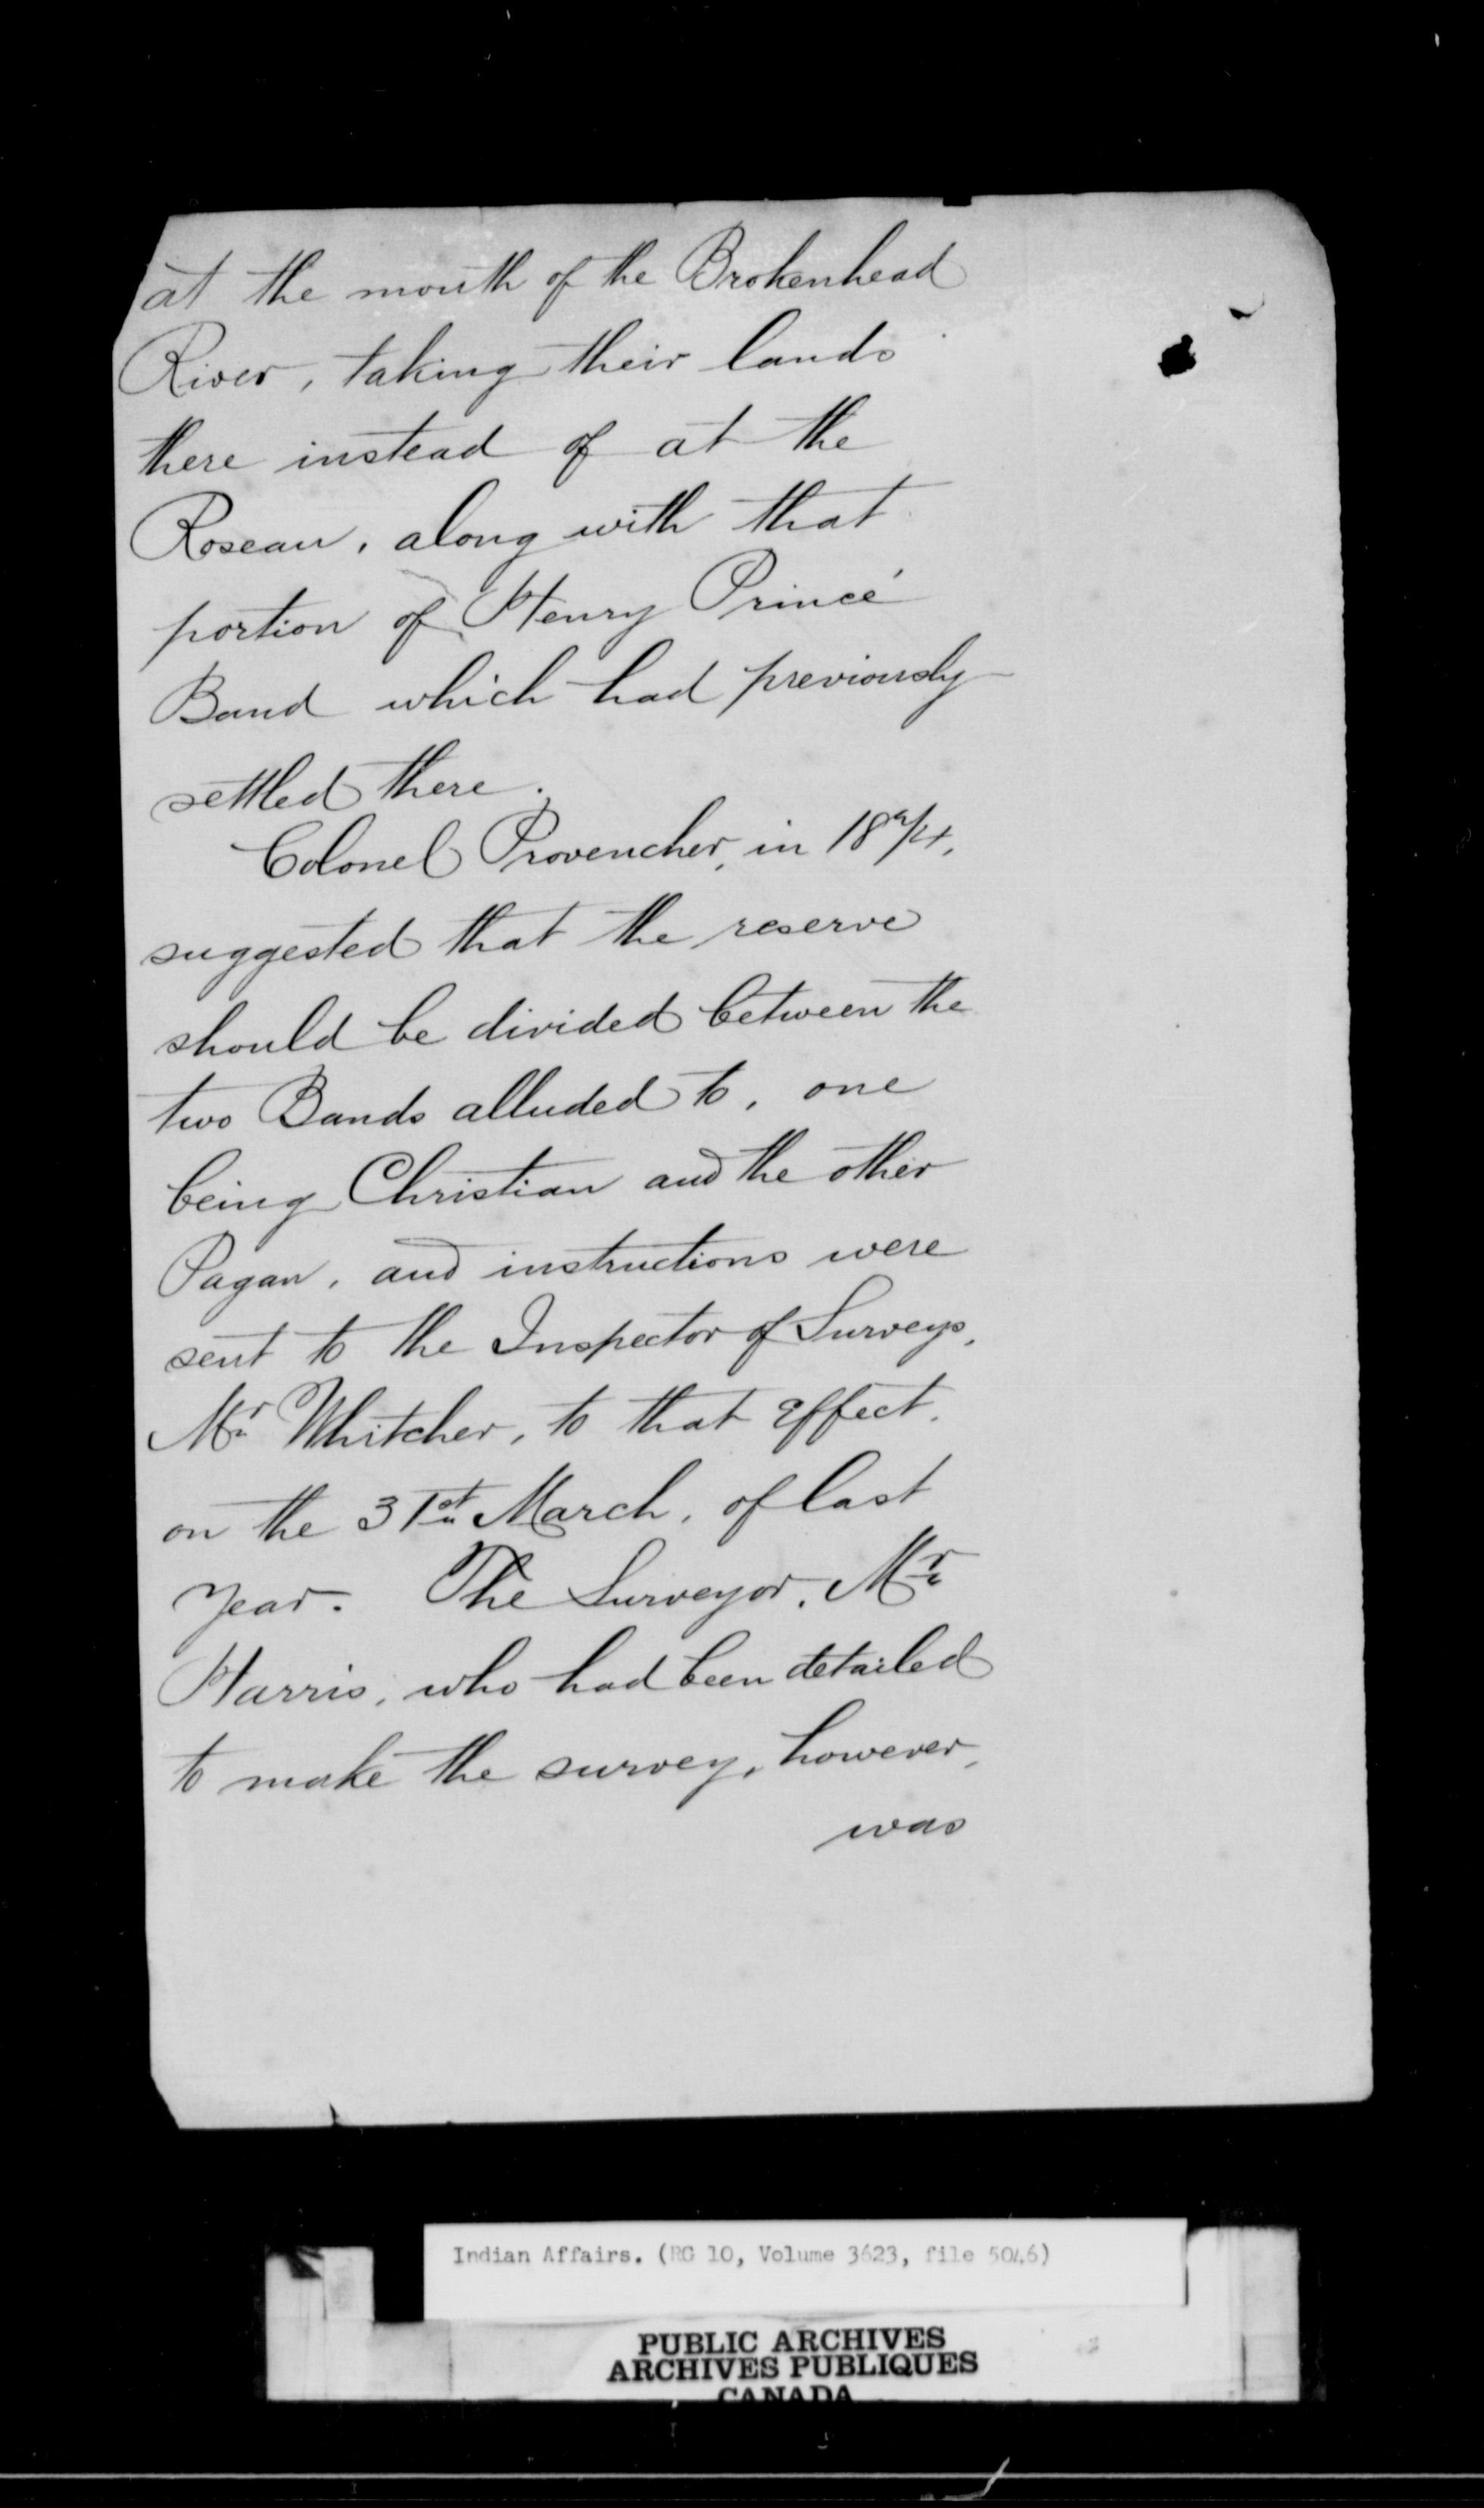 at the mouth of the Brokenhead
River, taking their lands
there instead of at the
Roseau, along with that
portion of Henry Prince'
Band which had previously
settled there.
Colonel Provencher, in 1874,
suggested that the reserve
should be divided between the
two Bands alluded to, one
being Christian and the other
Pagan, and instructions were
sent to the Inspector of Surveys,
Mr Whitcher, to that effect,
on the 31st March, of last
year. The Surveyor, Mr
Harris, who had been detailed
to make the survey, however,
was
Indian Affairs. (RG 10, Volume 3623, file 5046)
PUBLIC ARCHIVES
ARCHIVES PUBLIQUES
CANADA